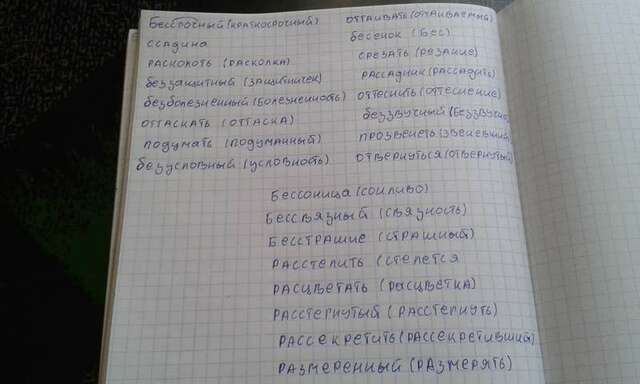 Бессрочный (краткосрочный)
ссадина
расколоть (расколка)
беззащитный (защитничек)
безболезненный (болезненность)
оттаскать (оттаска)
подумать (подуманный)
безусловный (условность)
оттаивать (оттаиваемый)
бесенок (бес)
срезать (резание)
рассадник (рассадить)
оттеснить (оттеснение)
беззвучный
прозвенеть (звеневший)
отвернуться (отвернутый)
Бессоница (сонливо)
Бессвязный (связность)
Бесстрашие (страшный)
расстелить (стелется
расцветать (расцветка)
расстегнутый (расстегнуть)
рассекретить (рассекретивший)
размеренный (размерять)